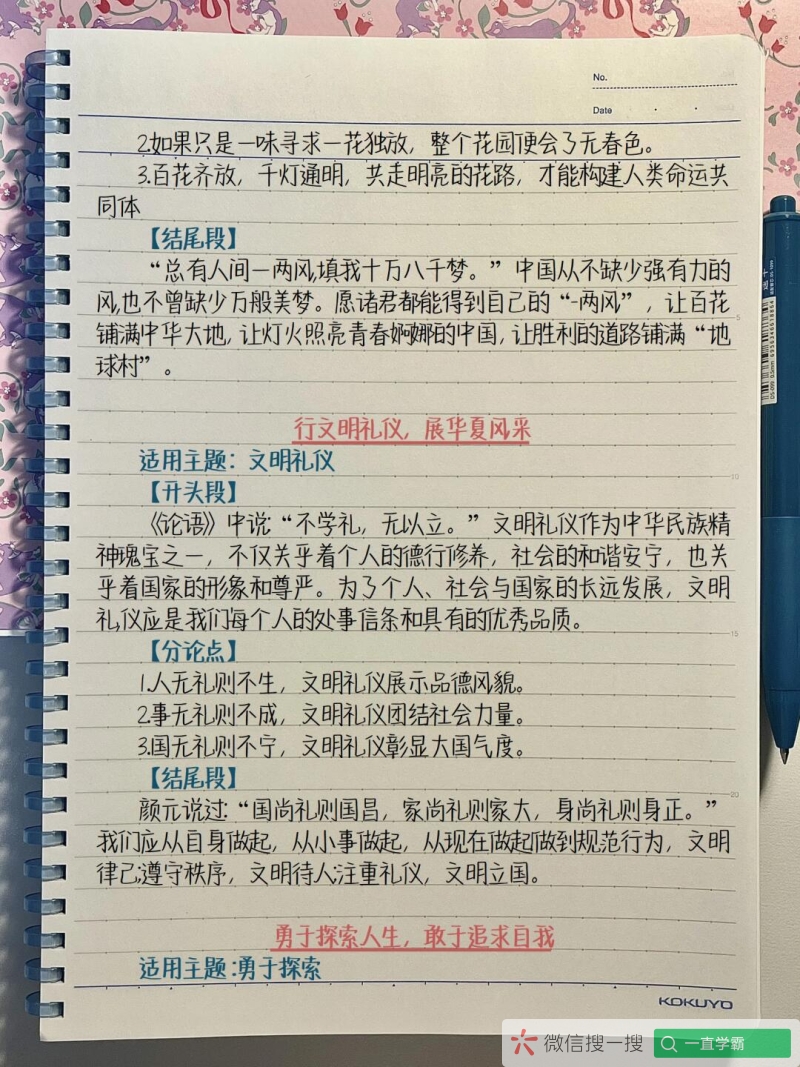 No.
Date
2.如果只是一味寻求一花独放，整个花园便会了无春色。
3.百花齐放，千灯通明，共走明亮的花路，才能构建人类命运共
同体
【结尾段】
“总有人间一两风,填我十万八千梦。”中国从不缺少强有力的
风,也不曾缺少万般美梦。愿诸君都能得到自己的“一两风”，让百花
铺满中华大地,让灯火照亮青春婀娜的中国,让胜利的道路铺满“地
球村”。
行文明礼仪，展华夏风采
适用主题：文明礼仪
【开头段】
《论语》中说:“不学礼，无以立。”文明礼仪作为中华民族精
神瑰宝之一，不仅关乎着个人的德行修养，社会的和谐安宁，也关
乎着国家的形象和尊严。为了个人、社会与国家的长远发展，文明
礼仪应是我们每个人的处事信条和具有的优秀品质。
【分论点】
1.人无礼则不生，文明礼仪展示品德风貌。
2.事无礼则不成，文明礼仪团结社会力量。
3.国无礼则不宁，文明礼仪彰显大国气度。
【结尾段】
颜元说过:“国尚礼则国昌，家尚礼则家大，身尚礼则身正。”
我们应从自身做起，从小事做起，从现在做起,做到规范行为，文明
律己;遵守秩序，文明待人;注重礼仪，文明立国。
勇于探索人生，敢于追求自我
适用主题:勇于探索
5
10
15
20
KOKUYO
微信搜一搜
一直学霸